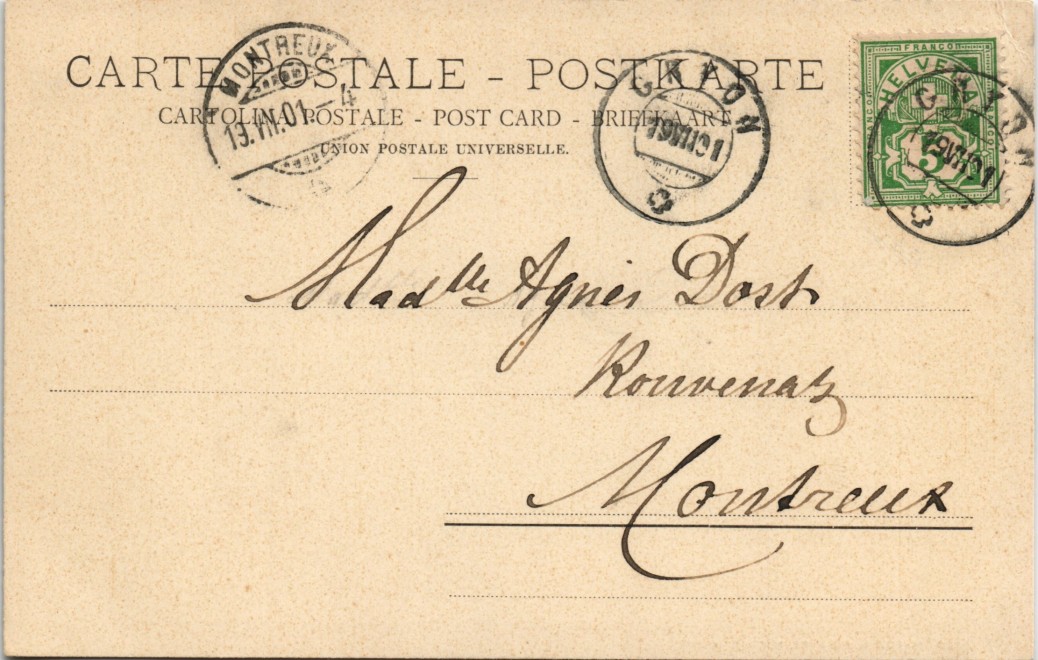 CARTE POSTALE - POSTKARTE
CARTOLINA POSTALE - POST CARD - BRIEFKAART
UNION POSTALE UNIVERSELLE.
MONTREUX
19.VII.01.-4
GRION
19 VII 01
FRANCO
HELVETIA
5
GRION
19 VII 01
Mad<sup>lle</sup> Agnès Dost
Rouvenaz
Montreux